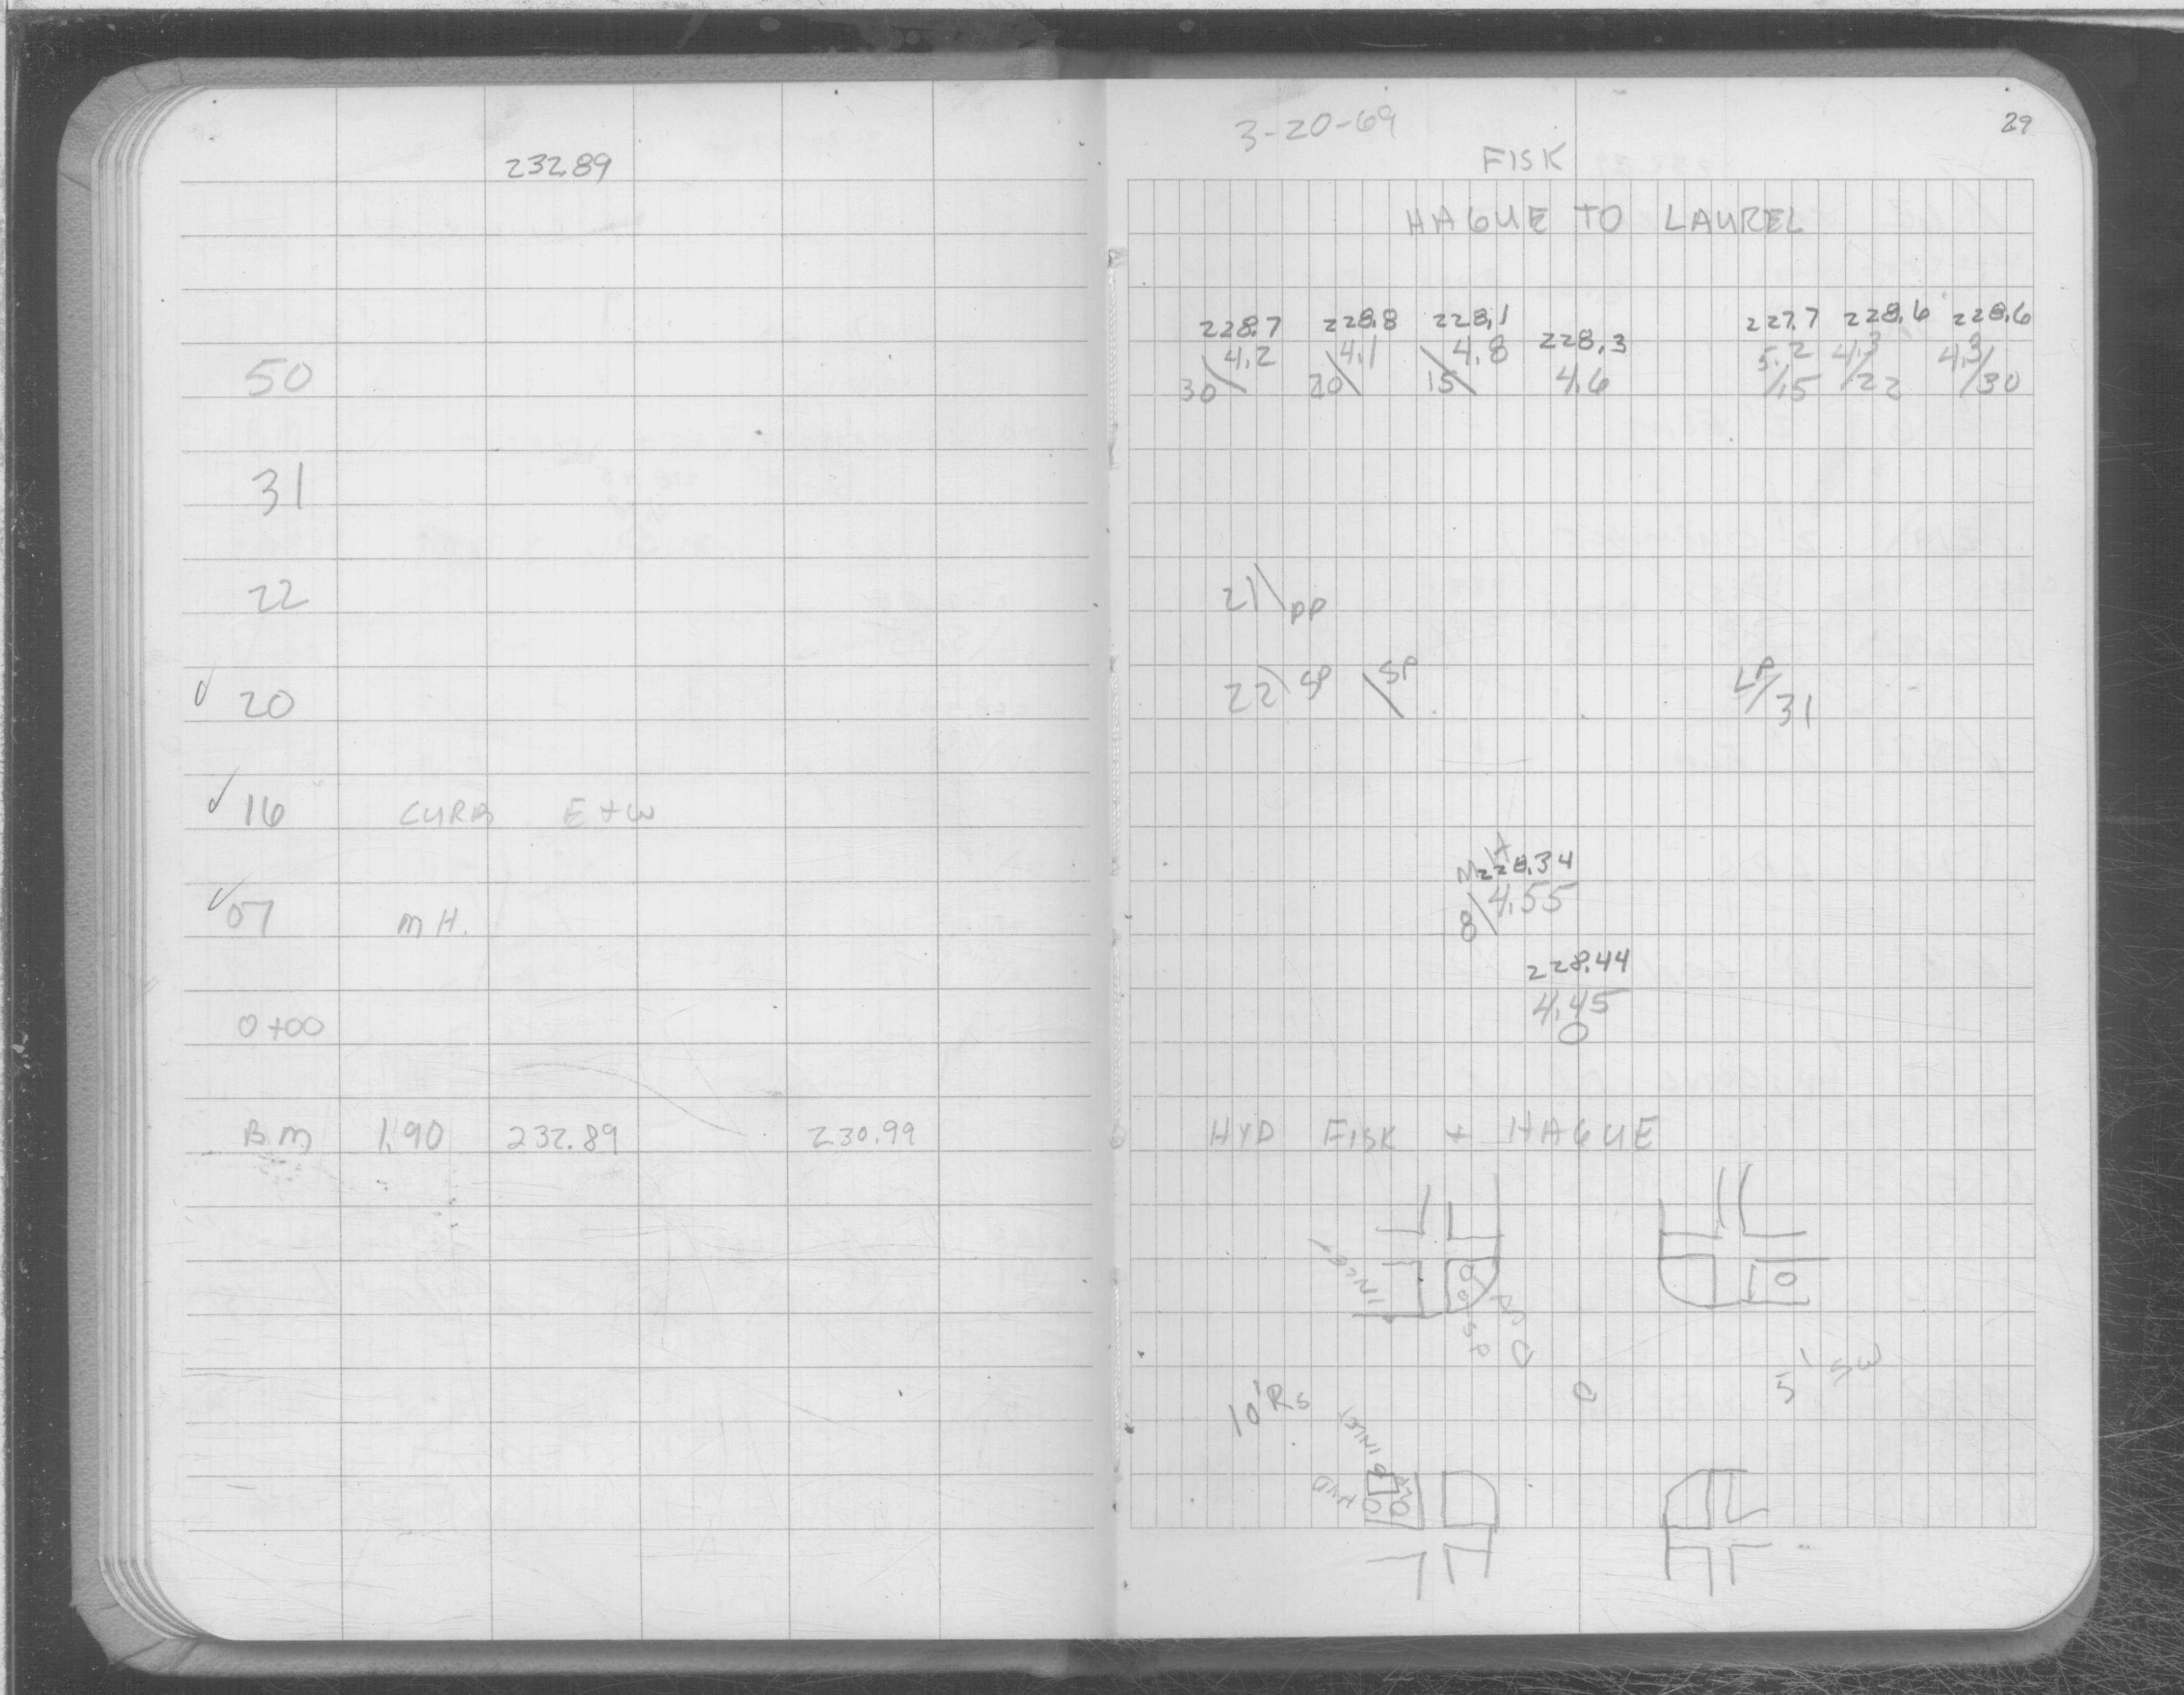 232.89
50
31
22
20
16 CURB E+W
07 MH.
0+00
BM 1.90 232.89 230.99
3-20-69
29
FISK
HAGUE TO LAUREL
228.7 228.8 228.1 228.3 227.7 228.6 228.6
4.2 4.1 4.8 4.6 5.2 4.3 4.3
30 20 15 15 22 30
21 PP
22 SP SP LP 31
MH 228.34
8 4.55
228.44
4.45
0
HYD FISK + HAGUE
INLET
SP
5' SW
10' Rs
INLET
HYD